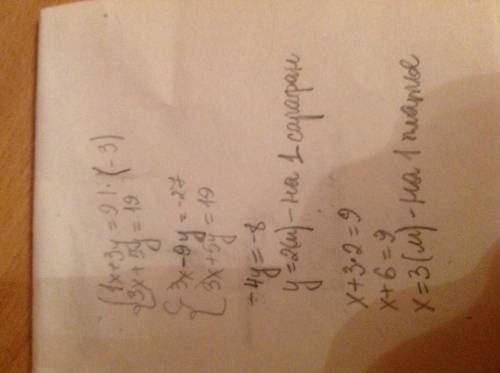 1x+3y=9 |·(-3)
3x+5y=19
-3x-9y=-27
3x+5y=19
-4y=-8
y=2(м)-на 1 сарафан
x+3·2=9
x+6=9
x=3(м)-на 1 платье